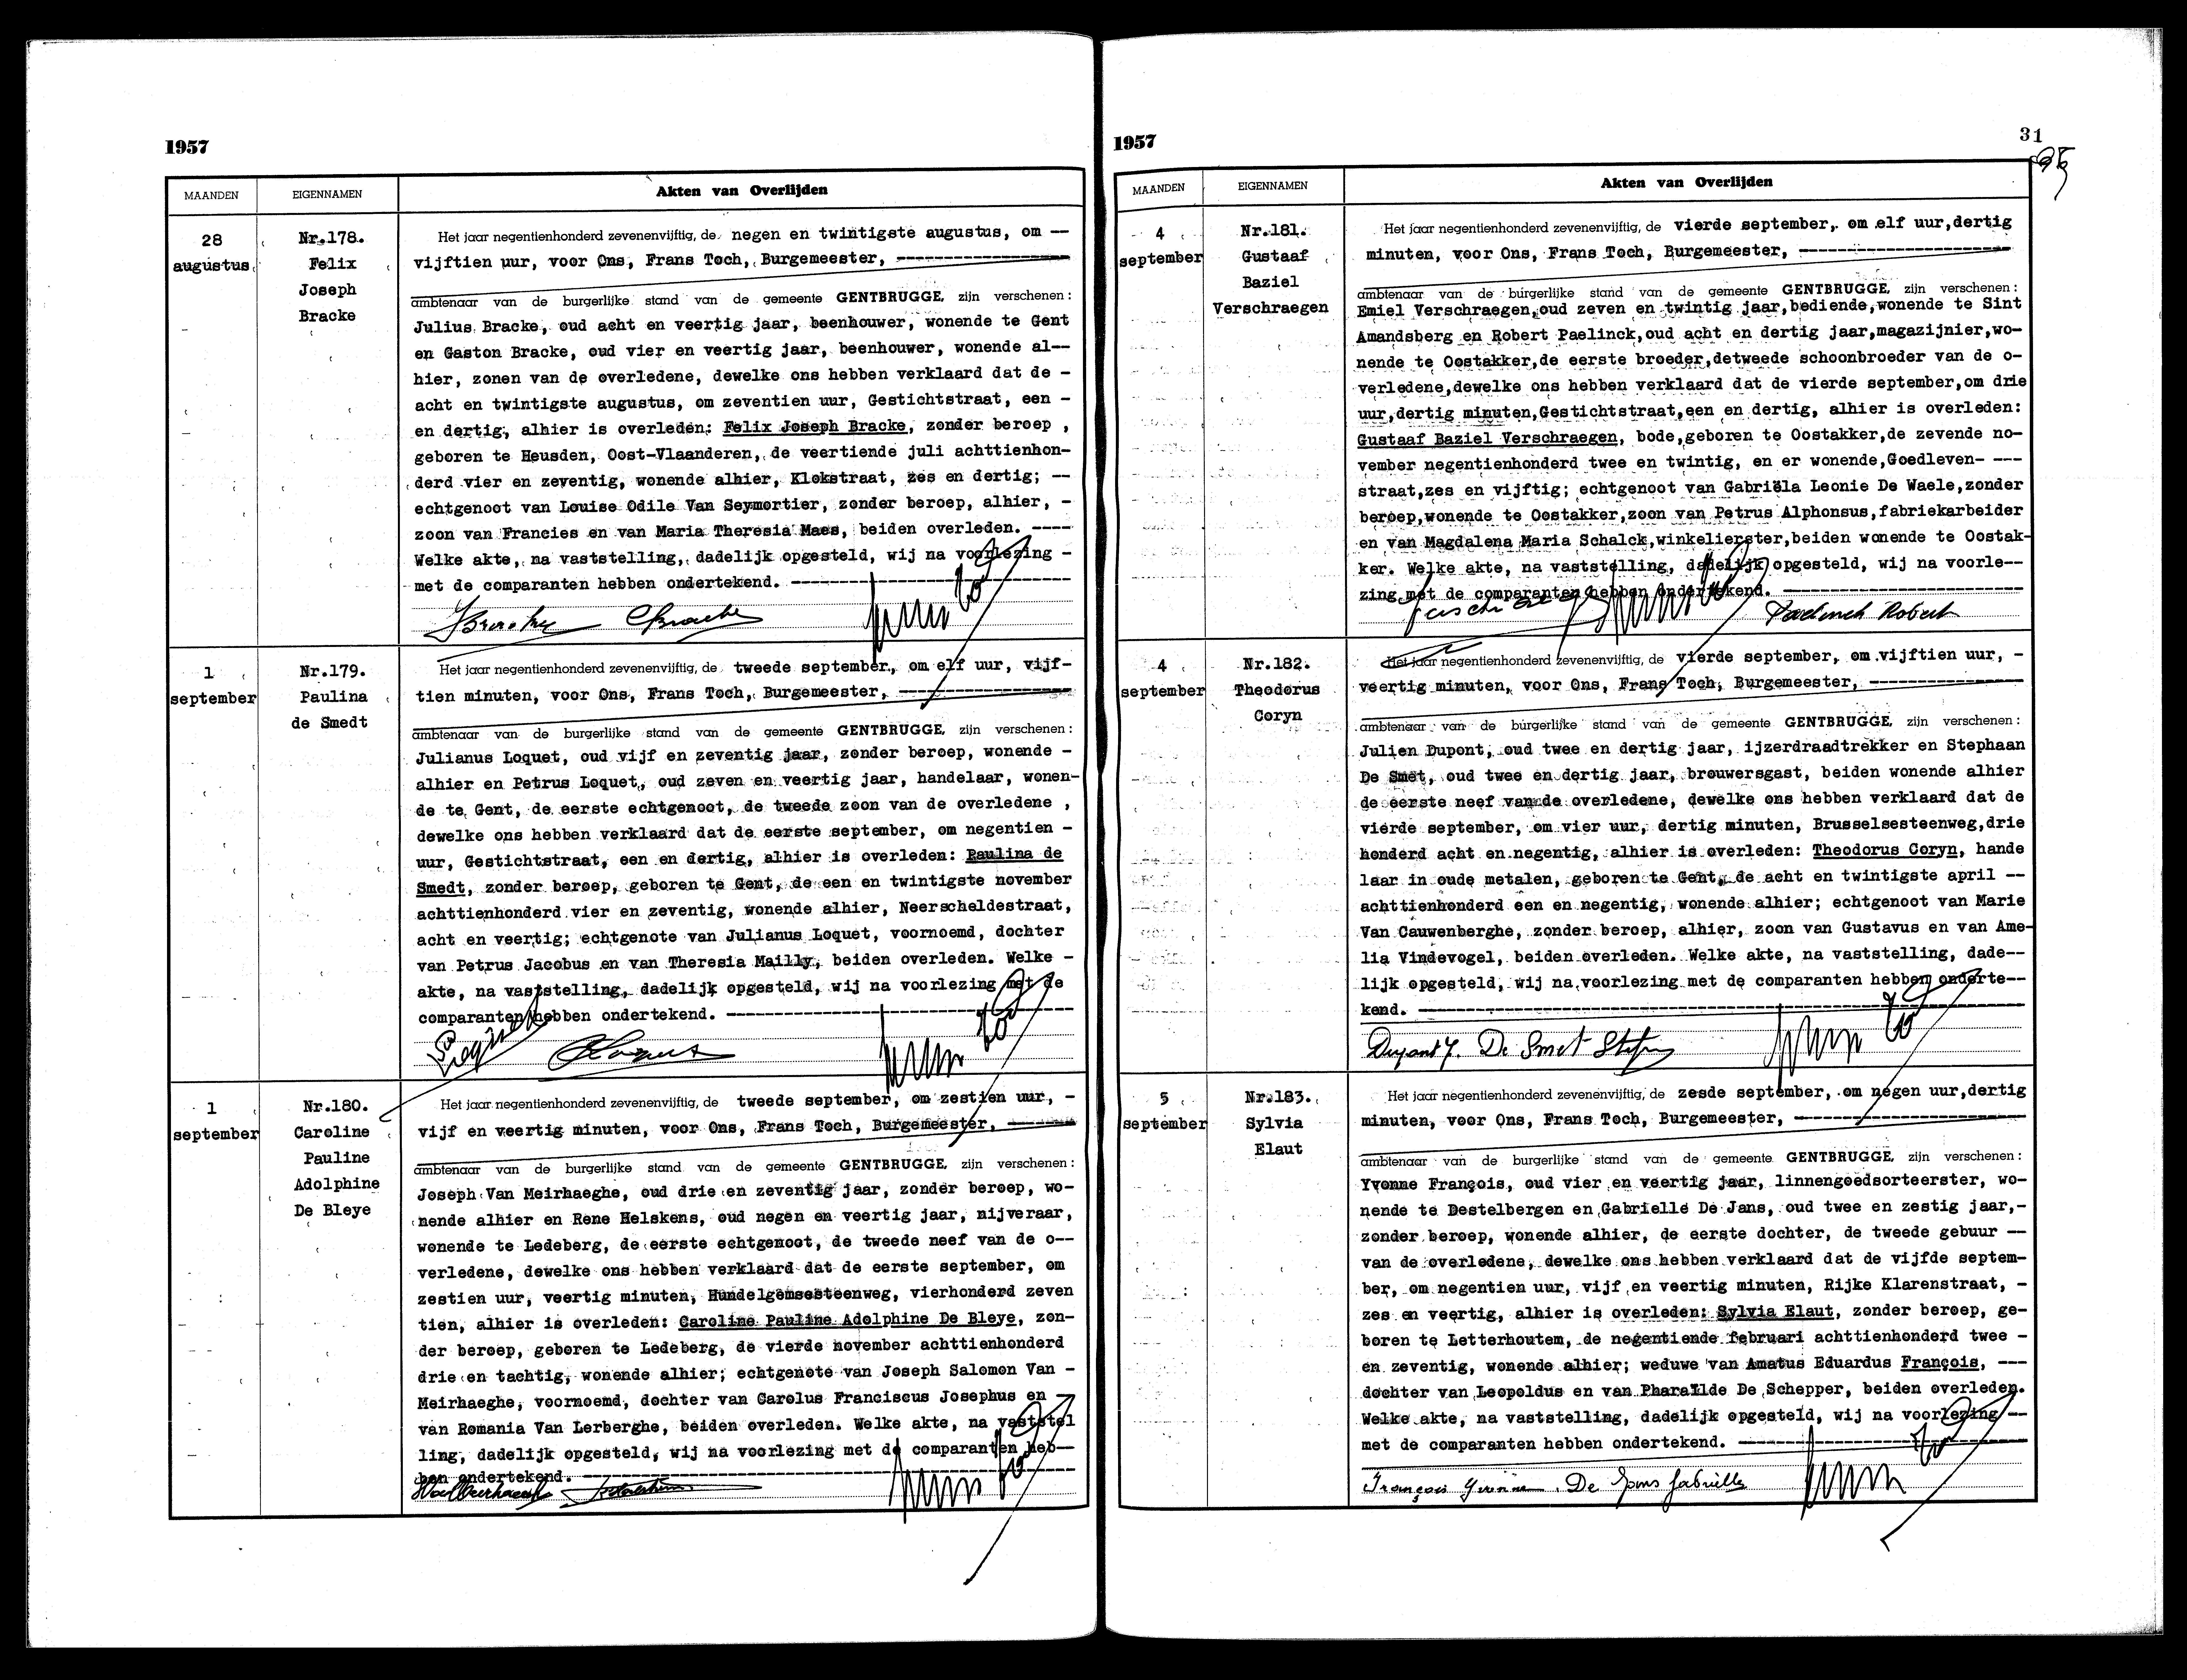 1957
MAANDEN
EIGENNAMEN
Akten van Overlijden
28
augustus
Nr.178.
Felix
Joseph
Bracke
Het jaar negentienhonderd zevenenvijftig, de negen en twintigste augustus, om --
vijftien uur, voor Ons, Frans Toch, Burgemeester, ----------
ambtenaar van de burgerlijke stand van de gemeente GENTBRUGGE, zijn verschenen:
Julius Bracke, oud acht en veertig jaar, beenhouwer, wonende te Gent
en Gaston Bracke, oud vier en veertig jaar, beenhouwer, wonende al--
hier, zonen van de overledene, dewelke ons hebben verklaard dat de -
acht en twintigste augustus, om zeventien uur, Gestichtstraat, een -
en dertig, alhier is overleden: Felix Joseph Bracke, zonder beroep ,
geboren te Heusden, Oost-Vlaanderen, de veertiende juli achttienhon-
derd vier en zeventig, wonende alhier, Klokstraat, zes en dertig; --
echtgenoot van Louise Odile Van Seymortier, zonder beroep, alhier, -
zoon van Francies en van Maria Theresia Maes, beiden overleden. ----
Welke akte, na vaststelling, dadelijk opgesteld, wij na voorlezing -
met de comparanten hebben ondertekend. ----------
1
september
Nr.179.
Paulina
de Smedt
Het jaar negentienhonderd zevenenvijftig, de tweede september, om elf uur, vijf-
tien minuten, voor Ons, Frans Toch, Burgemeester, ----------
ambtenaar van de burgerlijke stand van de gemeente GENTBRUGGE, zijn verschenen:
Julianus Loquet, oud vijf en zeventig jaar, zonder beroep, wonende -
alhier en Petrus Loquet, oud zeven en veertig jaar, handelaar, wonen-
de te Gent, de eerste echtgenoot, de tweede zoon van de overledene ,
dewelke ons hebben verklaard dat de eerste september, om negentien -
uur, Gestichtstraat, een en dertig, alhier is overleden: Paulina de
Smedt, zonder beroep, geboren te Gent, de een en twintigste november
achttienhonderd vier en zeventig, wonende alhier, Neerscheldestraat,
acht en veertig; echtgenote van Julianus Loquet, voornoemd, dochter
van Petrus Jacobus en van Theresia Mailly, beiden overleden. Welke -
akte, na vaststelling, dadelijk opgesteld, wij na voorlezing met de
comparanten hebben ondertekend. ----------
1
september
Nr.180.
Caroline
Pauline
Adolphine
De Bleye
Het jaar negentienhonderd zevenenvijftig, de tweede september, om zestien uur, -
vijf en veertig minuten, voor Ons, Frans Toch, Burgemeester, -----
ambtenaar van de burgerlijke stand van de gemeente GENTBRUGGE, zijn verschenen:
Joseph Van Meirhaeghe, oud drie en zeventig jaar, zonder beroep, wo-
nende alhier en Rene Helskens, oud negen en veertig jaar, nijveraar,
wonende te Ledeberg, de eerste echtgenoot, de tweede neef van de o--
verledene, dewelke ons hebben verklaard dat de eerste september, om
zestien uur, veertig minuten, Hundelgemsesteenweg, vierhonderd zeven
tien, alhier is overleden: Caroline Pauline Adolphine De Bleye, zon-
der beroep, geboren te Ledeberg, de vierde november achttienhonderd
drie en tachtig, wonende alhier; echtgenote van Joseph Salomon Van -
Meirhaeghe, voornoemd, dochter van Carolus Franciscus Josephus en --
van Romania Van Lerberghe, beiden overleden. Welke akte, na vaststel
ling, dadelijk opgesteld, wij na voorlezing met de comparanten heb--
ben ondertekend. ----------
1957
31
MAANDEN
EIGENNAMEN
Akten van Overlijden
4
september
Nr.181.
Gustaaf
Baziel
Verschraegen
Het jaar negentienhonderd zevenenvijftig, de vierde september, om elf uur,dertig
minuten, voor Ons, Frans Toch, Burgemeester, ----------
ambtenaar van de burgerlijke stand van de gemeente GENTBRUGGE, zijn verschenen:
Emiel Verschraegen,oud zeven en twintig jaar,bediende,wonende te Sint
Amandsberg en Robert Paelinck,oud acht en dertig jaar,magazijnier,wo-
nende te Oostakker,de eerste broeder,detweede schoonbroeder van de o-
verledene,dewelke ons hebben verklaard dat de vierde september,om drie
uur,dertig minuten,Gestichtstraat,een en dertig, alhier is overleden:
Gustaaf Baziel Verschraegen, bode,geboren te Oostakker,de zevende no-
vember negentienhonderd twee en twintig, en er wonende,Goedleven- ---
straat,zes en vijftig; echtgenoot van Gabriëla Leonie De Waele,zonder
beroep,wonende te Oostakker,zoon van Petrus Alphonsus,fabriekarbeider
en van Magdalena Maria Schalck,winkelierster,beiden wonende te Oostak-
ker. Welke akte, na vaststelling, dadelijk opgesteld, wij na voorle--
zing met de comparanten hebben ondertekend. ----------
Paelinck Robert
4
september
Nr.182.
Theodorus
Coryn
Het jaar negentienhonderd zevenenvijftig, de vierde september, om vijftien uur, -
veertig minuten, voor Ons, Frans Toch, Burgemeester, ----------
ambtenaar van de burgerlijke stand van de gemeente GENTBRUGGE, zijn verschenen:
Julien Dupont, oud twee en dertig jaar, ijzerdraadtrekker en Stephaan
De Smet, oud twee en dertig jaar, brouwersgast, beiden wonende alhier
de eerste neef van de overledene, dewelke ons hebben verklaard dat de
vierde september, om vier uur, dertig minuten, Brusselsesteenweg,drie
honderd acht en negentig, alhier is overleden: Theodorus Coryn, hande
laar in oude metalen, geboren te Gent, de acht en twintigste april --
achttienhonderd een en negentig, wonende alhier; echtgenoot van Marie
Van Cauwenberghe, zonder beroep, alhier, zoon van Gustavus en van Ame-
lia Vindevogel, beiden overleden. Welke akte, na vaststelling, dade--
lijk opgesteld, wij na voorlezing met de comparanten hebben onderte--
kend. ----------
Dupont J. De Smet
5
september
Nr.183.
Sylvia
Elaut
Het jaar negentienhonderd zevenenvijftig, de zesde september, om negen uur,dertig
minuten, voor Ons, Frans Toch, Burgemeester, ----------
ambtenaar van de burgerlijke stand van de gemeente GENTBRUGGE, zijn verschenen:
Yvonne François, oud vier en veertig jaar, linnengoedsorteerster, wo-
nende te Destelbergen en Gabrielle De Jans, oud twee en zestig jaar,-
zonder beroep, wonende alhier, de eerste dochter, de tweede gebuur --
van de overledene, dewelke ons hebben verklaard dat de vijfde septem-
ber, om negentien uur, vijf en veertig minuten, Rijke Klarenstraat, -
zes en veertig, alhier is overleden: Sylvia Elaut, zonder beroep, ge-
boren te Letterhoutem, de negentiende februari achttienhonderd twee -
en zeventig, wonende alhier; weduwe van Amatus Eduardus François, ---
dochter van Leopoldus en van Pharaïlde De Schepper, beiden overleden.
Welke akte, na vaststelling, dadelijk opgesteld, wij na voorlezing --
met de comparanten hebben ondertekend. ----------
François Yvonne De Jans Gabrielle